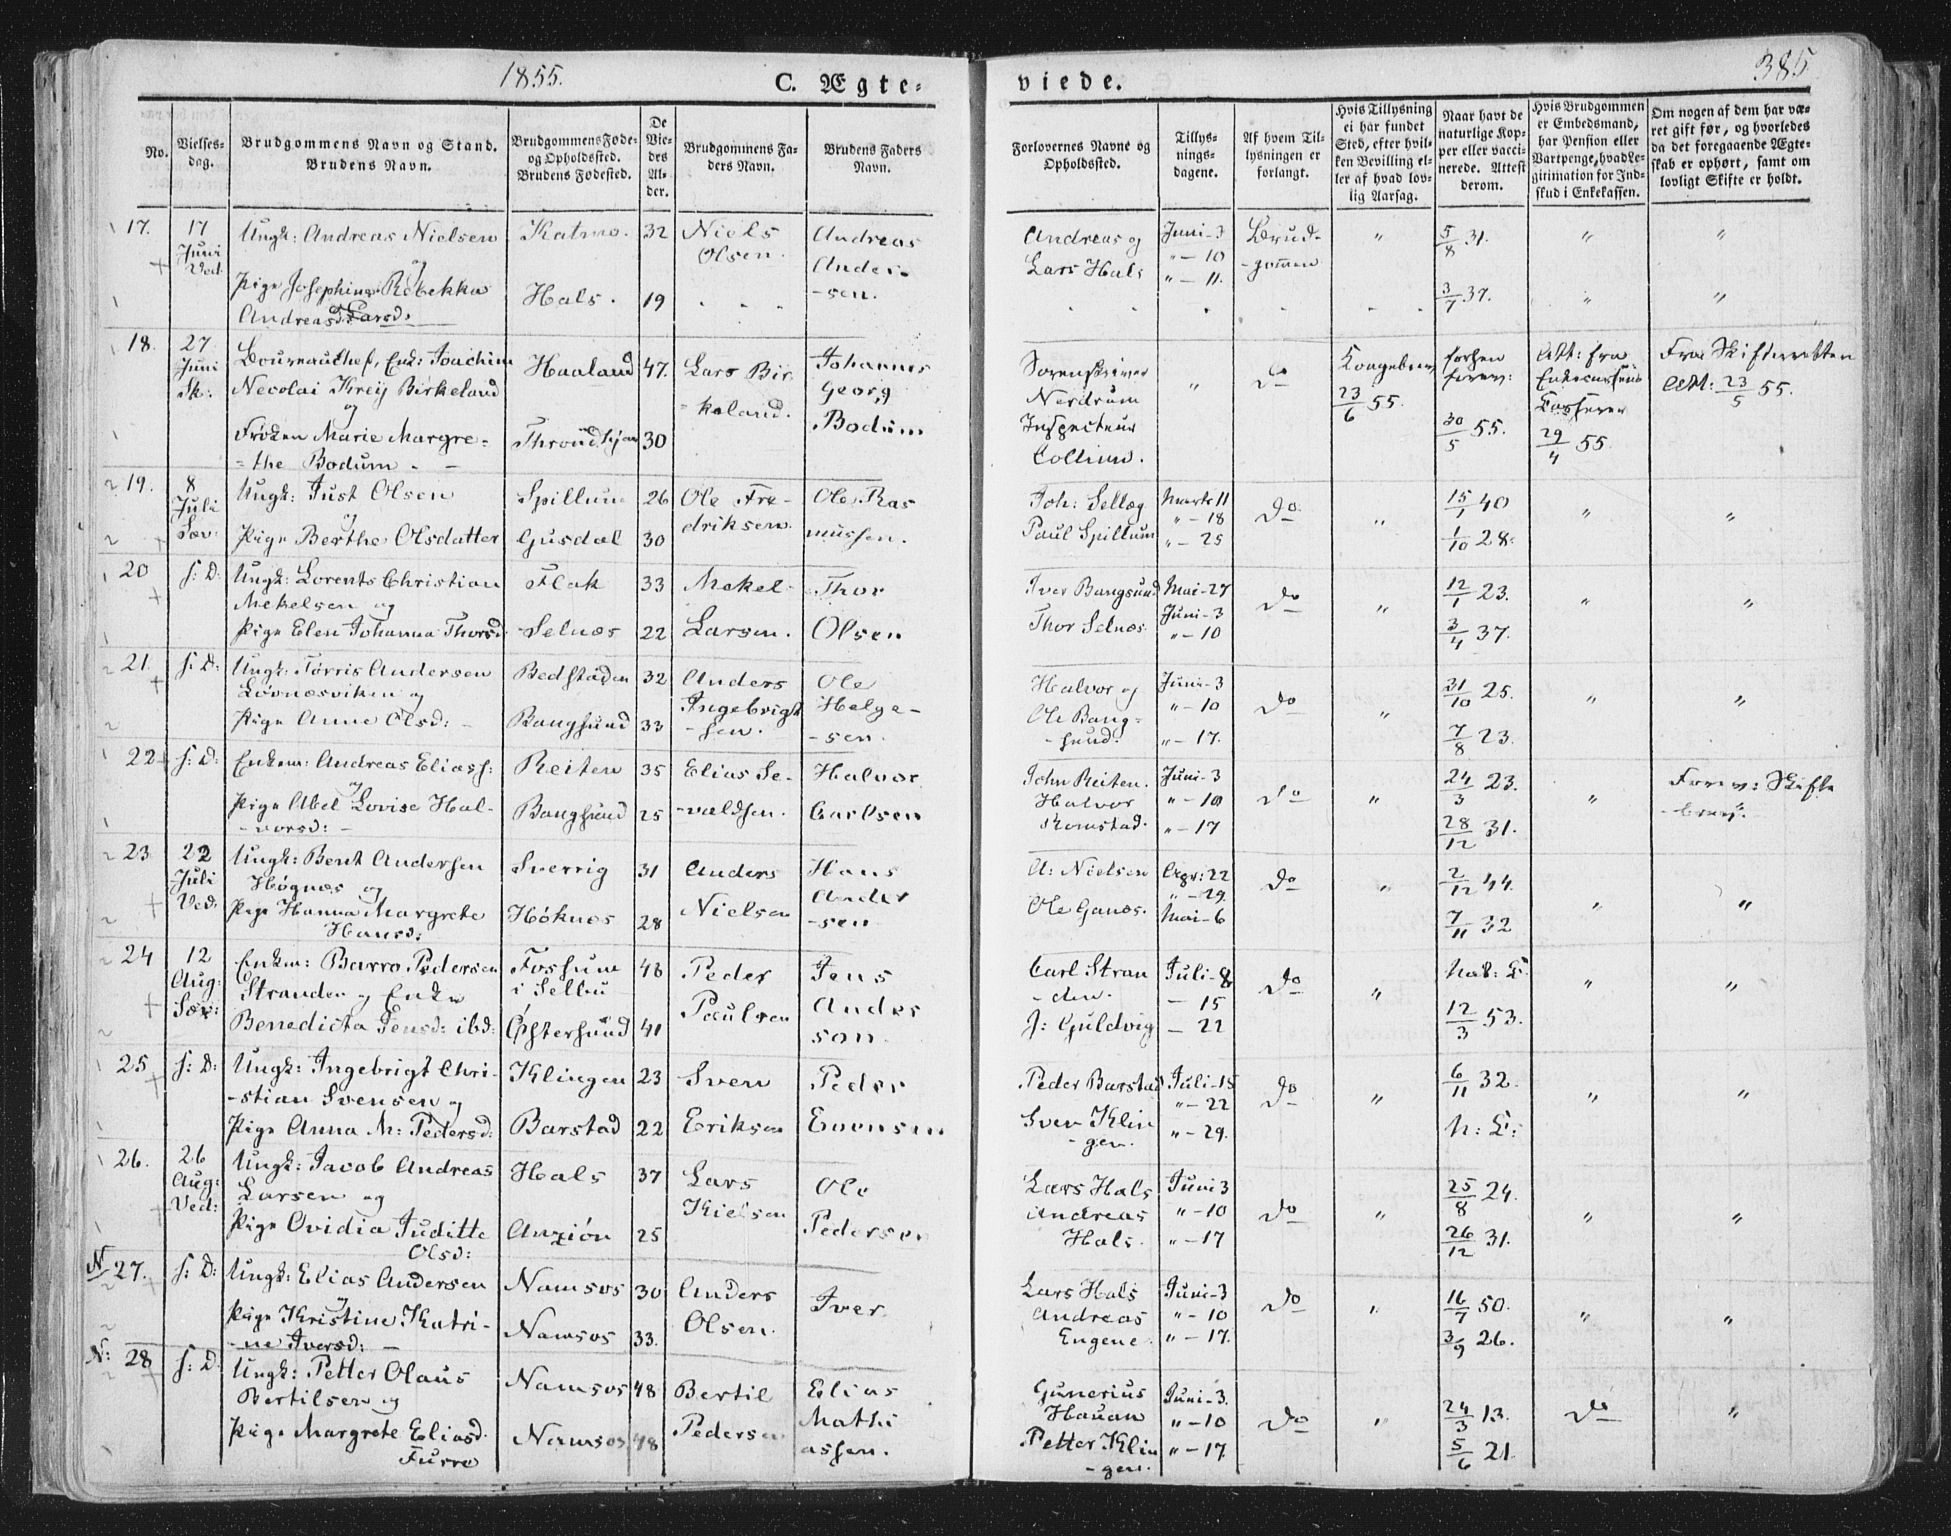 1855.
C. Ægte-
viede.
385
No.
Vielses-
dag.
Brudgommens Navn og Stand.
Brudens Navn.
Brudgommens Føde-
og Opholdssted.
Brudens Fødested.
De
Vie-
des
Al-
der.
Brudgommens Fa-
ders Navn.
Brudens Faders
Navn.
Forlovernes Navne og
Opholdssted.
Tillys-
nings-
dagene.
Af hvem Til-
lysningen er
forlangt.
Hvis Tillysning
ei har fundet
Sted, efter hvil-
ken Bevilling el-
ler af hvad lov-
lig Aarsag.
Naar havt de
naturlige Kop-
per eller vacci-
nerede. Attest
derom.
Hvis Brudgommen
er Embedsmand,
har Pension eller
Vartpenge, hvad Le-
gitimation for Ind-
skud i Enkekassen.
Om nogen af dem har væ-
ret gift før, og hvorledes
da det foregaaende Ægte-
skab er ophørt, samt om
lovligt Skifte er holdt.
17. 17 Ungk: Andreas Nielsen Katmo. 32 Niels Andreas
Juni og Olsen. Ander-
Ved. Pige Josephine Rebekka Hals. 19 -sen.
Andreasd:
Andreas og Juni-3 Brud- " 5/8 31. " "
Lars Hals "-10 -gommen
"-11. 3/7 37. " "
18. 27 Enk: Joachim Haaland 47. Lars Bir- Johannes
Juni Necolai Kreij Birkeland -keland. Georg
Sk: og Bodum
Frøken Marie Margre- Throndhjem 30
-the Bodum.
Sorenskriver " do 23/6 55. Att: fra Fra Skifteretten
Nordrum Att: 23/5 55.
Inspecteur 30/5 55. 29/4 55
Collin.
19. 8 Ungk: Just Olsen Spillum 26 Ole Fre- Ole Ras
Juli og driksen. mussen.
Pige Berthe Olsdatter Gusdal 30
Joh: Sellæg Marts 11 do " 15/1 40 " "
Paul Spillum "-18
"-25 1/10 28.
20 s: D: Ungk: Lorents Christian Flak 33 Mekel- Thor
Mekelsen og Larsen. Olsen
Pige Elen Johanna Thorsd: Selnæs 22
Iver Bangsund Mai-27 do " 12/1 23. " "
Thor Selnæs Juni-3
"-10 3/4 37.
21. s: D: Ungk: Tørris Andersen Bedstaden 32 Anders Ole
Løvnæsviken og Ingebrigt Helge-
Pige Anne Olsd: Bangsund 33 -sen. -sen.
Halvor og Juni-3 do " 31/10 25. " "
Ole Bang- "-10
-sund. "-17. 7/8 23.
22 s: D: Enkem: Andreas Eliass: Reiten 35 Elias Se- Halvor
og -valdsen. Carlsen
Pige Abel Lovise Hal- Bangsund 25
-vorsd:
John Reiten. Juni-3 do " 24/3 23. " Forev: Skifte
Halvor "-10
Romstad. "-17 28/12 31.
23 22 Ungk: Bent Andersen Sverrig 31 Anders Hans
Juli Høgnæs og Nielsen Ander
Ved: Pige Hanna Margrete Høknæs 28 -sen
Hansd:
A: Nielsen Apr: 22 do " 2/12 44. " "
"-29.
Ole Ganæs. Mai-6 7/11 32
24 12 Enkem: Barro Pedersen Fossum 48 Peder Jens
Aug: Stranden og Enke i Selbu Paulsen Ander
Søn: Benedicta Jensd: ibd: Østersund 41 son.
Carl Stran Juli-8 do " nat: K: " "
-den. -15
J: Guldvig -22 12/3 53.
25 s: D: Ungk: Ingebrigt Chri- Klingen 23 Sven Peder
-stian Svensen og Eriksen Evensen
Pige Anna M: Pedersd: Barstad 22
Peder Barstad Juli-15 do " 6/11 32 " "
"-22
Sven Klin "-29.
-gen. n: K:
26. 26 Ungk: Jacob Andreas Hals 37 Lars Ole
Aug: Larsen og Kielsen Pedersen
Ved: Pige Ovidia Juditte 25
Olsd:
Lars Hals Juni 3 do " 25/8 24. " "
Andreas "-10
Hals. "-17 26/12 31.
N 27. s: D: Ungk: Elias Andersen Namsos 30 Anders Iver
og Olsen.
Pige Kristine Katri- Namsos 33.
-ne Iversd:
Lars Hals Juni-3 do " 16/7 50. " "
Andreas "-10
Engene "-17. 3/9 26.
N: 28 s: D. Ungk: Petter Olaus Namsos 48 Bertil Elias
Bertilsen og Pedersen Mathi
Pige Margrete Eliasd. Namsos 48 assen.
Furre
Gunerius Juni-3. do " 24/3 13. do "
Hauan "-10
Petter Klin "-17. 5/6 21.
-gen.